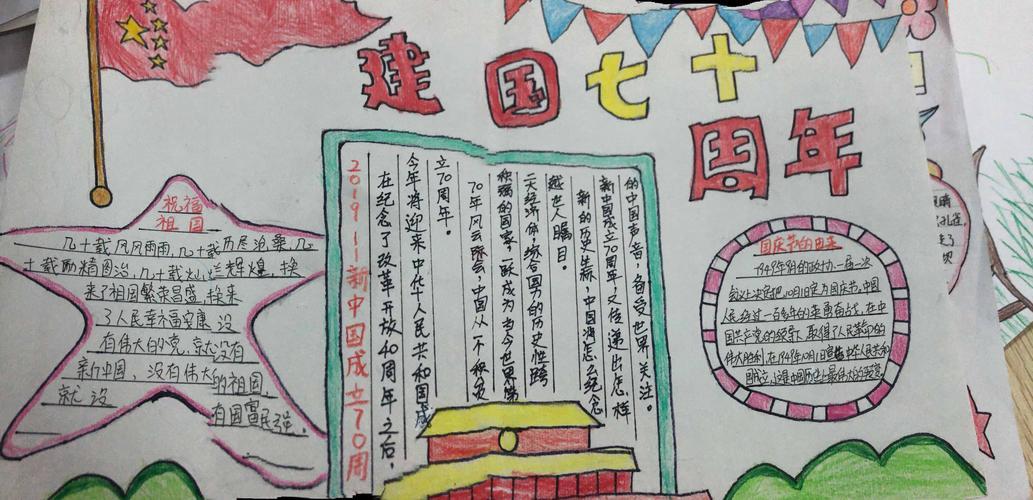 建国七十
周年
祝福
祖国
几十载风风雨雨,几十载历尽沧桑,几
十载励精图治,几十载灿烂辉煌,换
来了祖国繁荣昌盛,换来
了人民幸福安康 没
有伟大的党,就没有
新中国,没有伟大的祖国,
就没
有国富民强,
2019——新中国成立70周
在纪念了改革开放40周年之后,
今年将迎来中华人民共和国成
立70周年。
70年风云际会,中国从一个积贫
积弱的国家一跃成为当今世界第
二大经济体,综合国力的历史性跨
越世人瞩目。
新的历史坐标,中国将怎么纪念
新中国成立70周年,又传递出怎样
的中国声音,备受世界关注。
国庆节的由来
1949年9月的政协一届一次
会议上决定把10月1日定为国庆节,中国
人民经过一百多年的英勇奋战,在中
国共产党的领导,取得了人民革命的
伟大胜利,在1949年10月1日宣告中华人民共和
国成立,这是中国历史上最伟大的转变